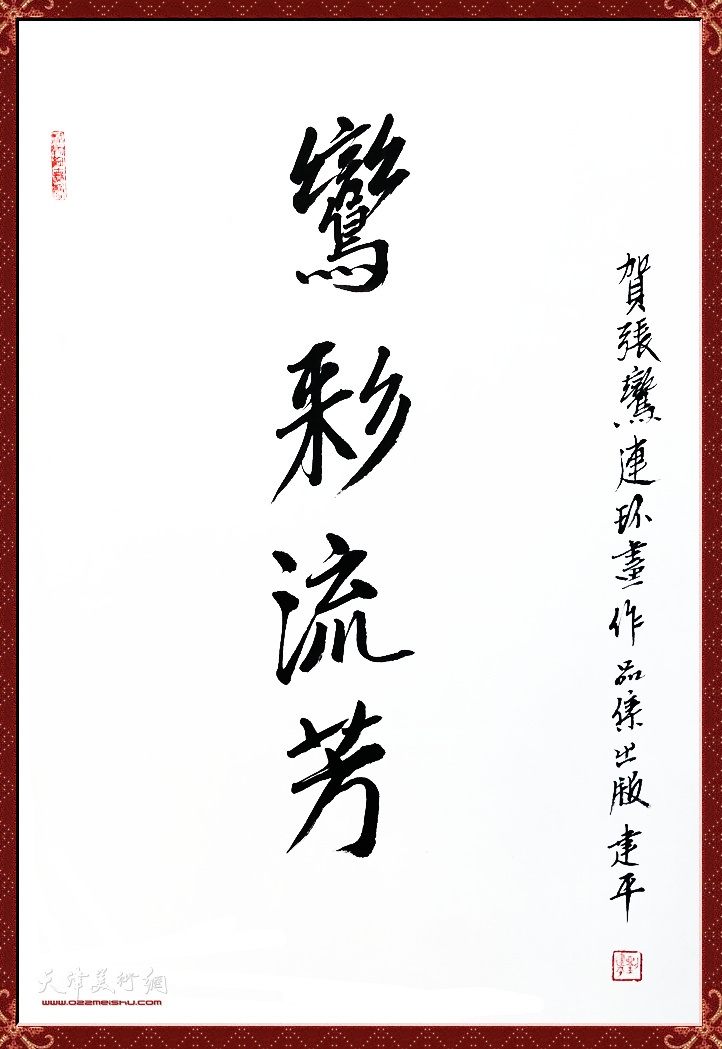 賀張鸞連环畫作品集出版 建平
鸞彩流芳
天津美術網
www.022meishu.com